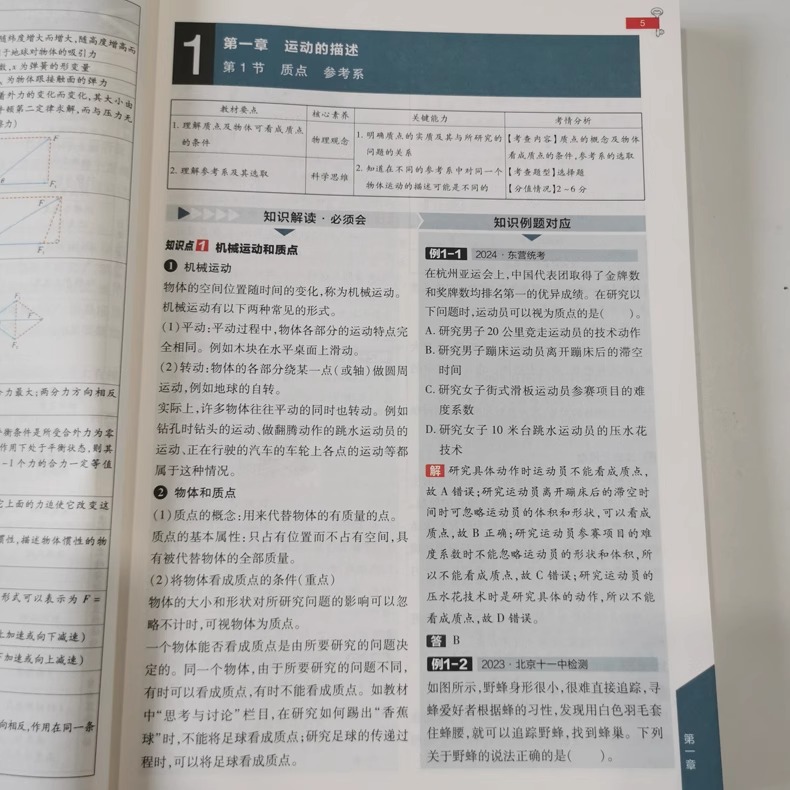 随纬度增大而增大,随高度增高而
于地球对物体的吸引力
数,x为弹簧的形变量
为物体跟接触面的弹力
着外力的变化而变化,其大小由
牛顿第二定律求解,而与压力无
F
F₁
力最大;两分力方向相反
平衡条件是所受合外力为零
作用下处于平衡状态,则其
-1个力的合力一定等值
它上面的力迫使它改变这
惯性,描述物体惯性的物
形式可以表示为 F =
上加速或向下减速)
下加速或向上减速)
向相反,作用在同一条
5
1
第一章 运动的描述
第1节 质点 参考系
教材要点
核心素养
关键能力
考情分析
1. 理解质点及物体可看成质点
的条件
物理观念
1. 明确质点的实质及其与所研究的
问题的关系
【考查内容】质点的概念及物体
看成质点的条件,参考系的选取
2. 理解参考系及其选取
科学思维
2. 知道在不同的参考系中对同一个
物体运动的描述可能是不同的
【考查题型】选择题
【分值情况】2~6分
知识解读·必须会
知识点1 机械运动和质点
❶ 机械运动
物体的空间位置随时间的变化,称为机械运动。
机械运动有以下两种常见的形式。
(1)平动:平动过程中,物体各部分的运动特点完
全相同。例如木块在水平桌面上滑动。
(2)转动:物体的各部分绕某一点(或轴)做圆周
运动,例如地球的自转。
实际上,许多物体往往平动的同时也转动。例如
钻孔时钻头的运动、做翻腾动作的跳水运动员的
运动、正在行驶的汽车的车轮上各点的运动等都
属于这种情况。
❷ 物体和质点
(1)质点的概念:用来代替物体的有质量的点。
质点的基本属性:只占有位置而不占有空间,具
有被代替物体的全部质量。
(2)将物体看成质点的条件(重点)
物体的大小和形状对所研究问题的影响可以忽
略不计时,可视物体为质点。
一个物体能否看成质点是由所要研究的问题决
定的。同一个物体,由于所要研究的问题不同,
有时可以看成质点,有时不能看成质点。如教材
中“思考与讨论”栏目,在研究如何踢出“香蕉
球”时,不能将足球看成质点;研究足球的传递过
程时,可以将足球看成质点。
知识例题对应
例1-1 2024·东营统考
在杭州亚运会上,中国代表团取得了金牌数
和奖牌数均排名第一的优异成绩。在研究以
下问题时,运动员可以视为质点的是( )。
A. 研究男子20公里竞走运动员的技术动作
B. 研究男子蹦床运动员离开蹦床后的滞空
时间
C. 研究女子街式滑板运动员参赛项目的难
度系数
D. 研究女子10米台跳水运动员的压水花
技术
解 研究具体动作时运动员不能看成质点,
故A错误;研究运动员离开蹦床后的滞空时
间时可忽略运动员的体积和形状,可以看成
质点,故B正确;研究运动员参赛项目的难
度系数时不能忽略运动员的形状和体积,所
以不能看成质点,故C错误;研究运动员的
压水花技术时是研究具体的动作,所以不能
看成质点,故D错误。
答 B
例1-2 2023·北京十一中检测
如图所示,野蜂身形很小,很难直接追踪,寻
蜂爱好者根据蜂的习性,发现用白色羽毛套
住蜂腰,就可以追踪野蜂,找到蜂巢。下列
关于野蜂的说法正确的是( )。
第一章